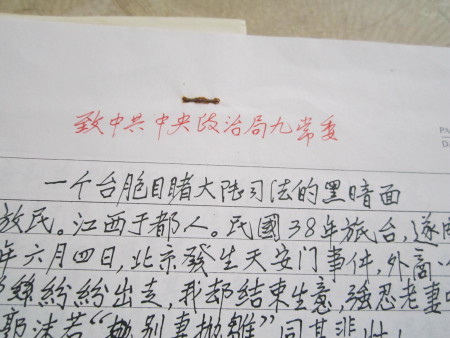 致中共中央政治局九常委
PA
DA
一个台胞目睹大陆司法的黑暗面
放民。江西于都人。民國38年旅台,遂
年六月四日,北京發生天安门事件,外商
纷纷出走,我却结束生意,強忍老妻
郭沫若“抛别妻抛雏”同其悲壮!